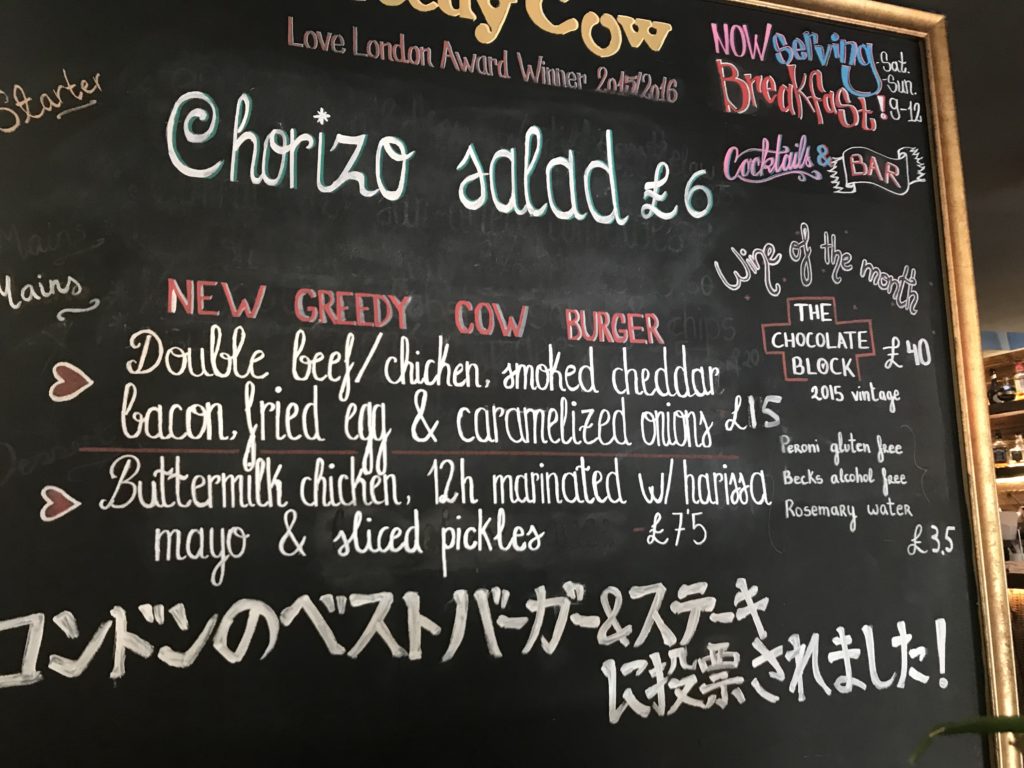 Cow
Love London Award Winner 2015/2016
Starter
Chorizo salad £6
NOW serving
Breakfast!
Sat.
Sun.
9-12
Cocktails &
BAR
Mains
Mains
NEW GREEDY COW BURGER
Double beef/chicken, smoked cheddar
bacon, fried egg & caramelized onions £15
Buttermilk chicken, 12h marinated w/ harissa
mayo & sliced pickles -£7'5
Wine of the month
THE
CHOCOLATE
BLOCK
£40
2015 vintage
Peroni gluten free
Becks alcohol free
Rosemary water
£3.5
コンドンのベストバーガー&ステーキ
に投票されました!